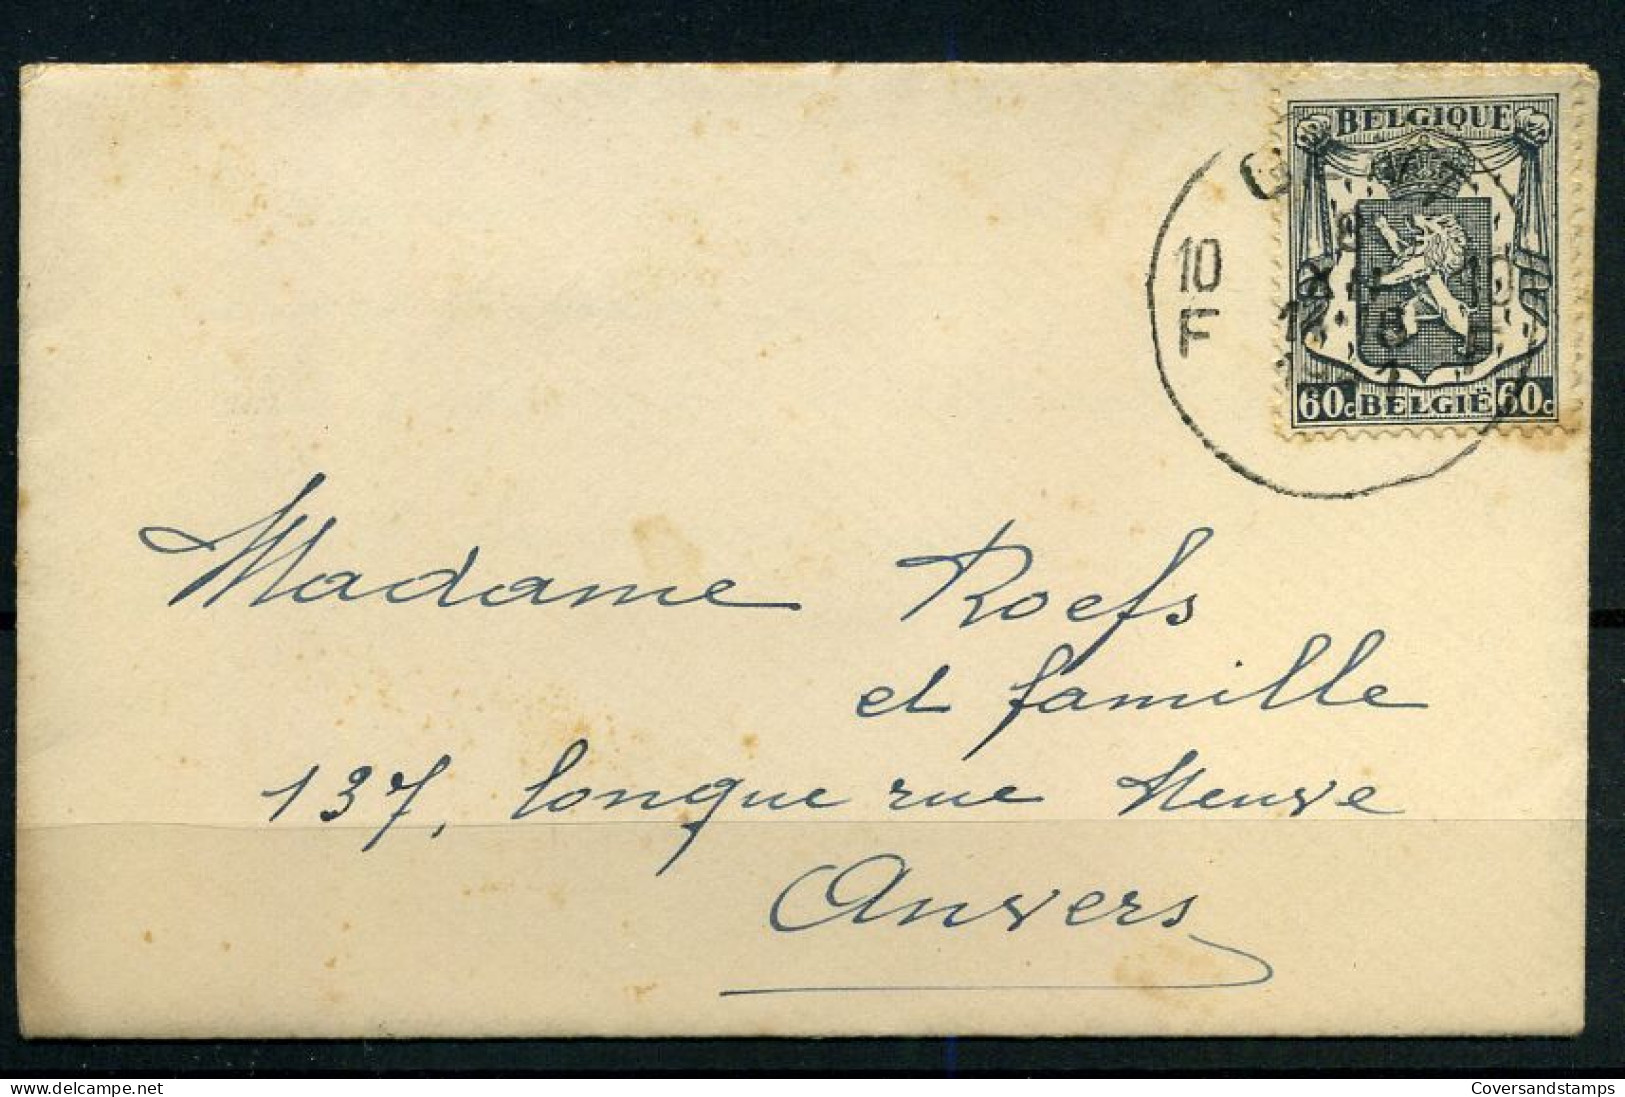 BELGIQUE
10 F
60c BELGIË 60c
Madame Roefs
et famille
137, longue rue Neuve
Anvers
delcampe.net
Coversandstamps